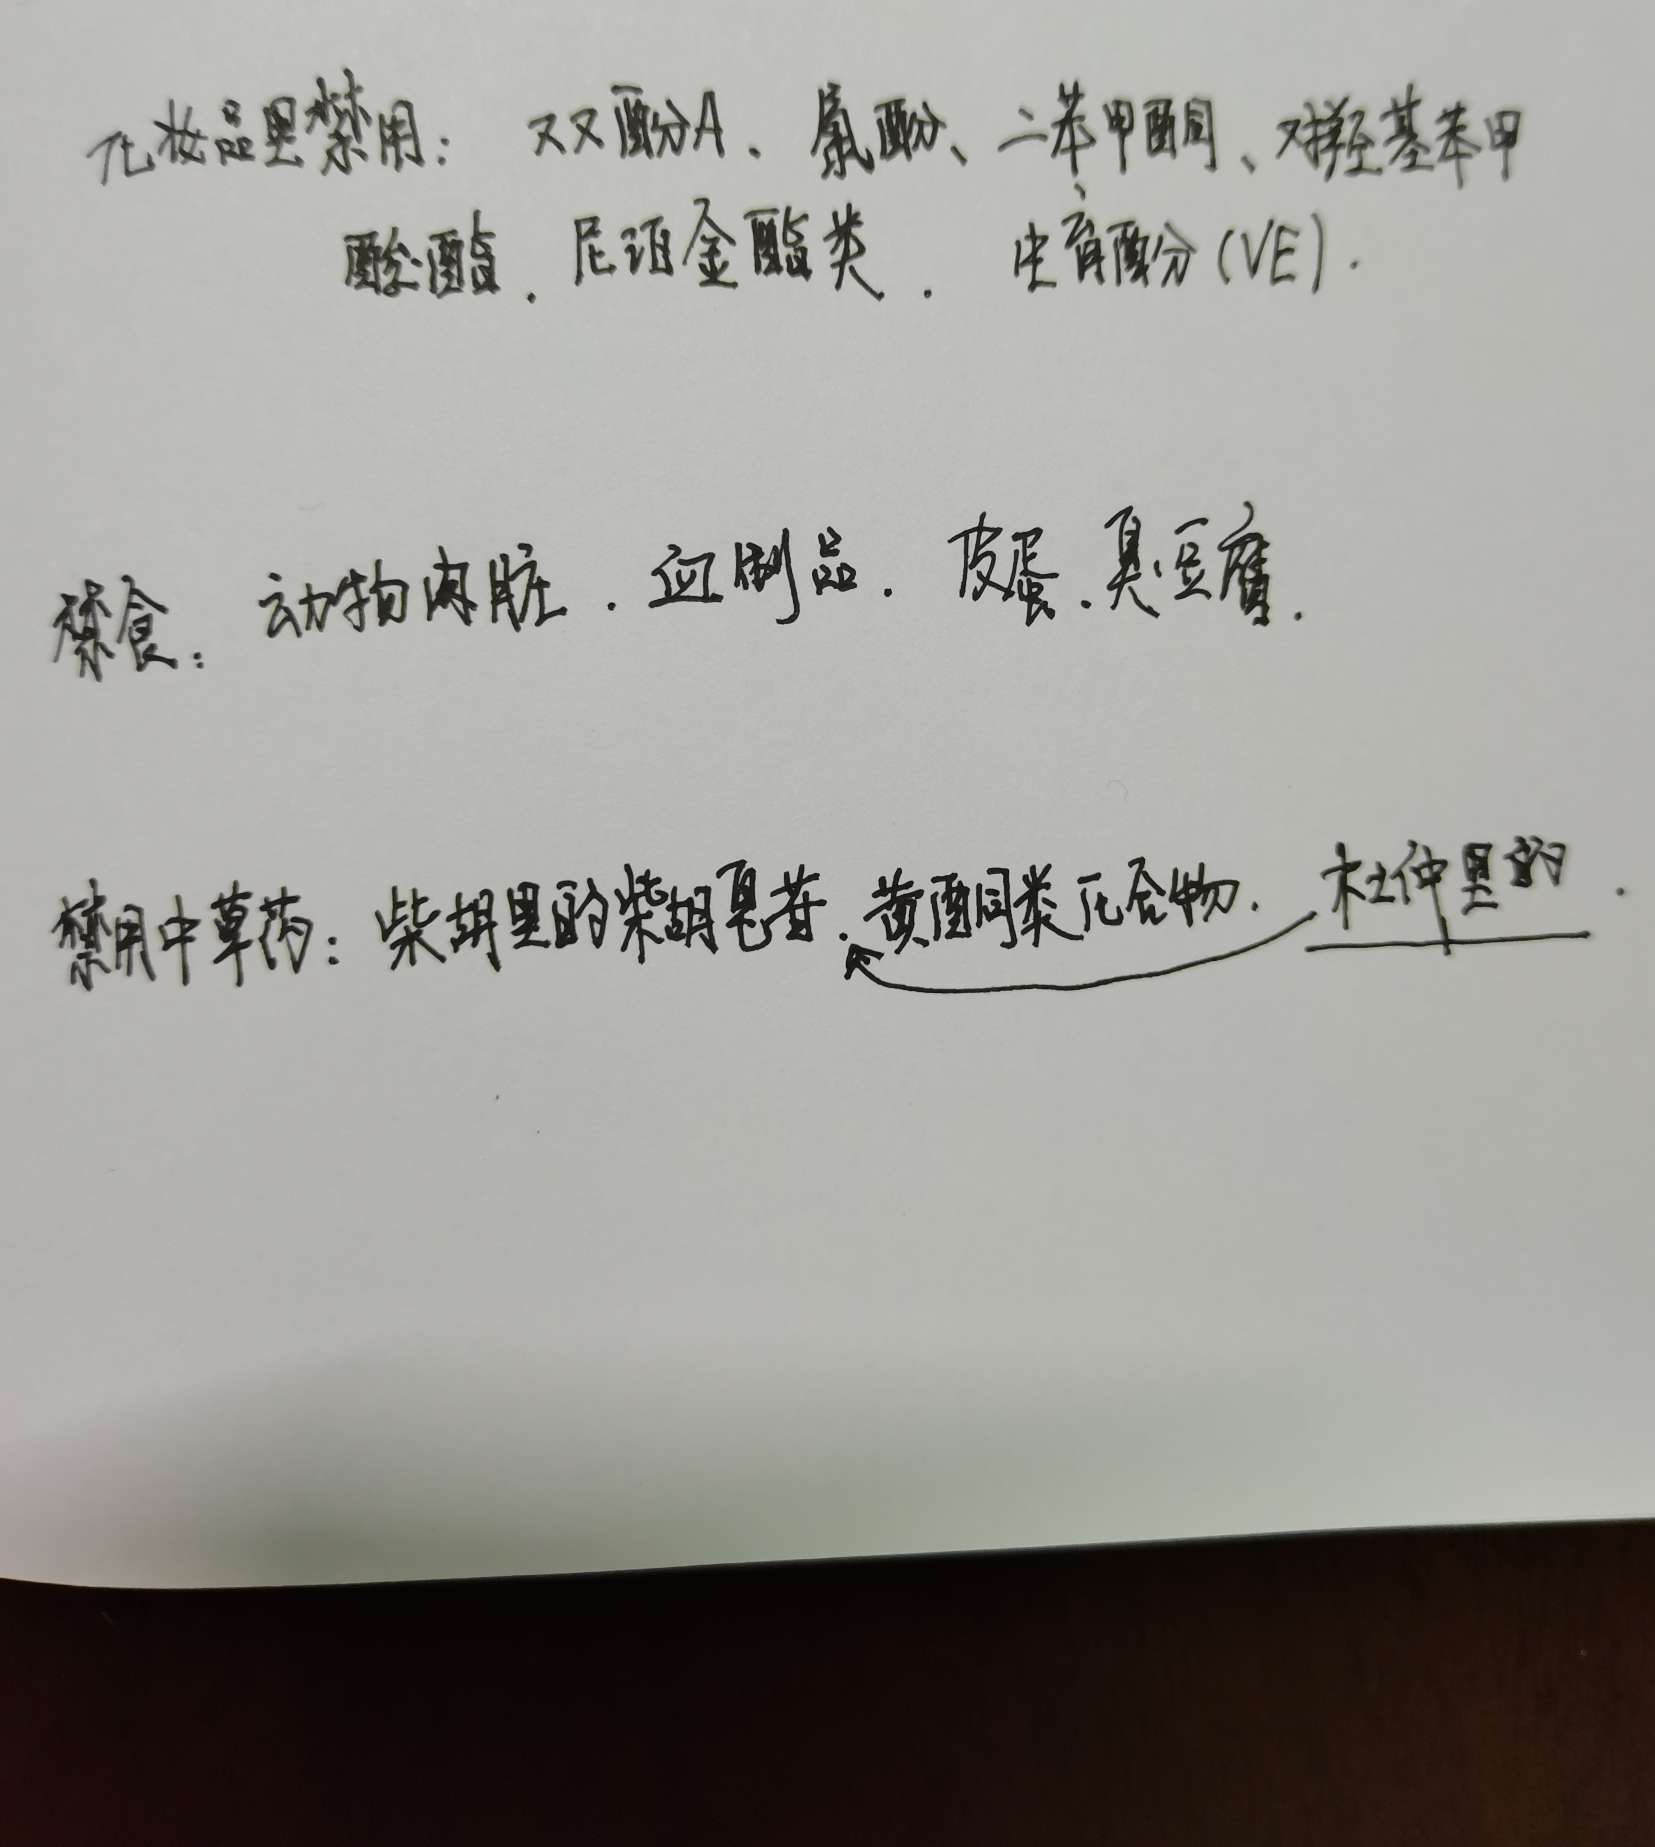 化妆品里禁用：双酚A、氯酚、二苯甲酮、对羟基苯甲
酸酯、尼泊金酯类、生育酚(VE).
禁食：动物内脏、血制品、皮蛋、臭豆腐.
禁用中草药：柴胡里的柴胡皂苷、黄酮类化合物、杜仲里的.